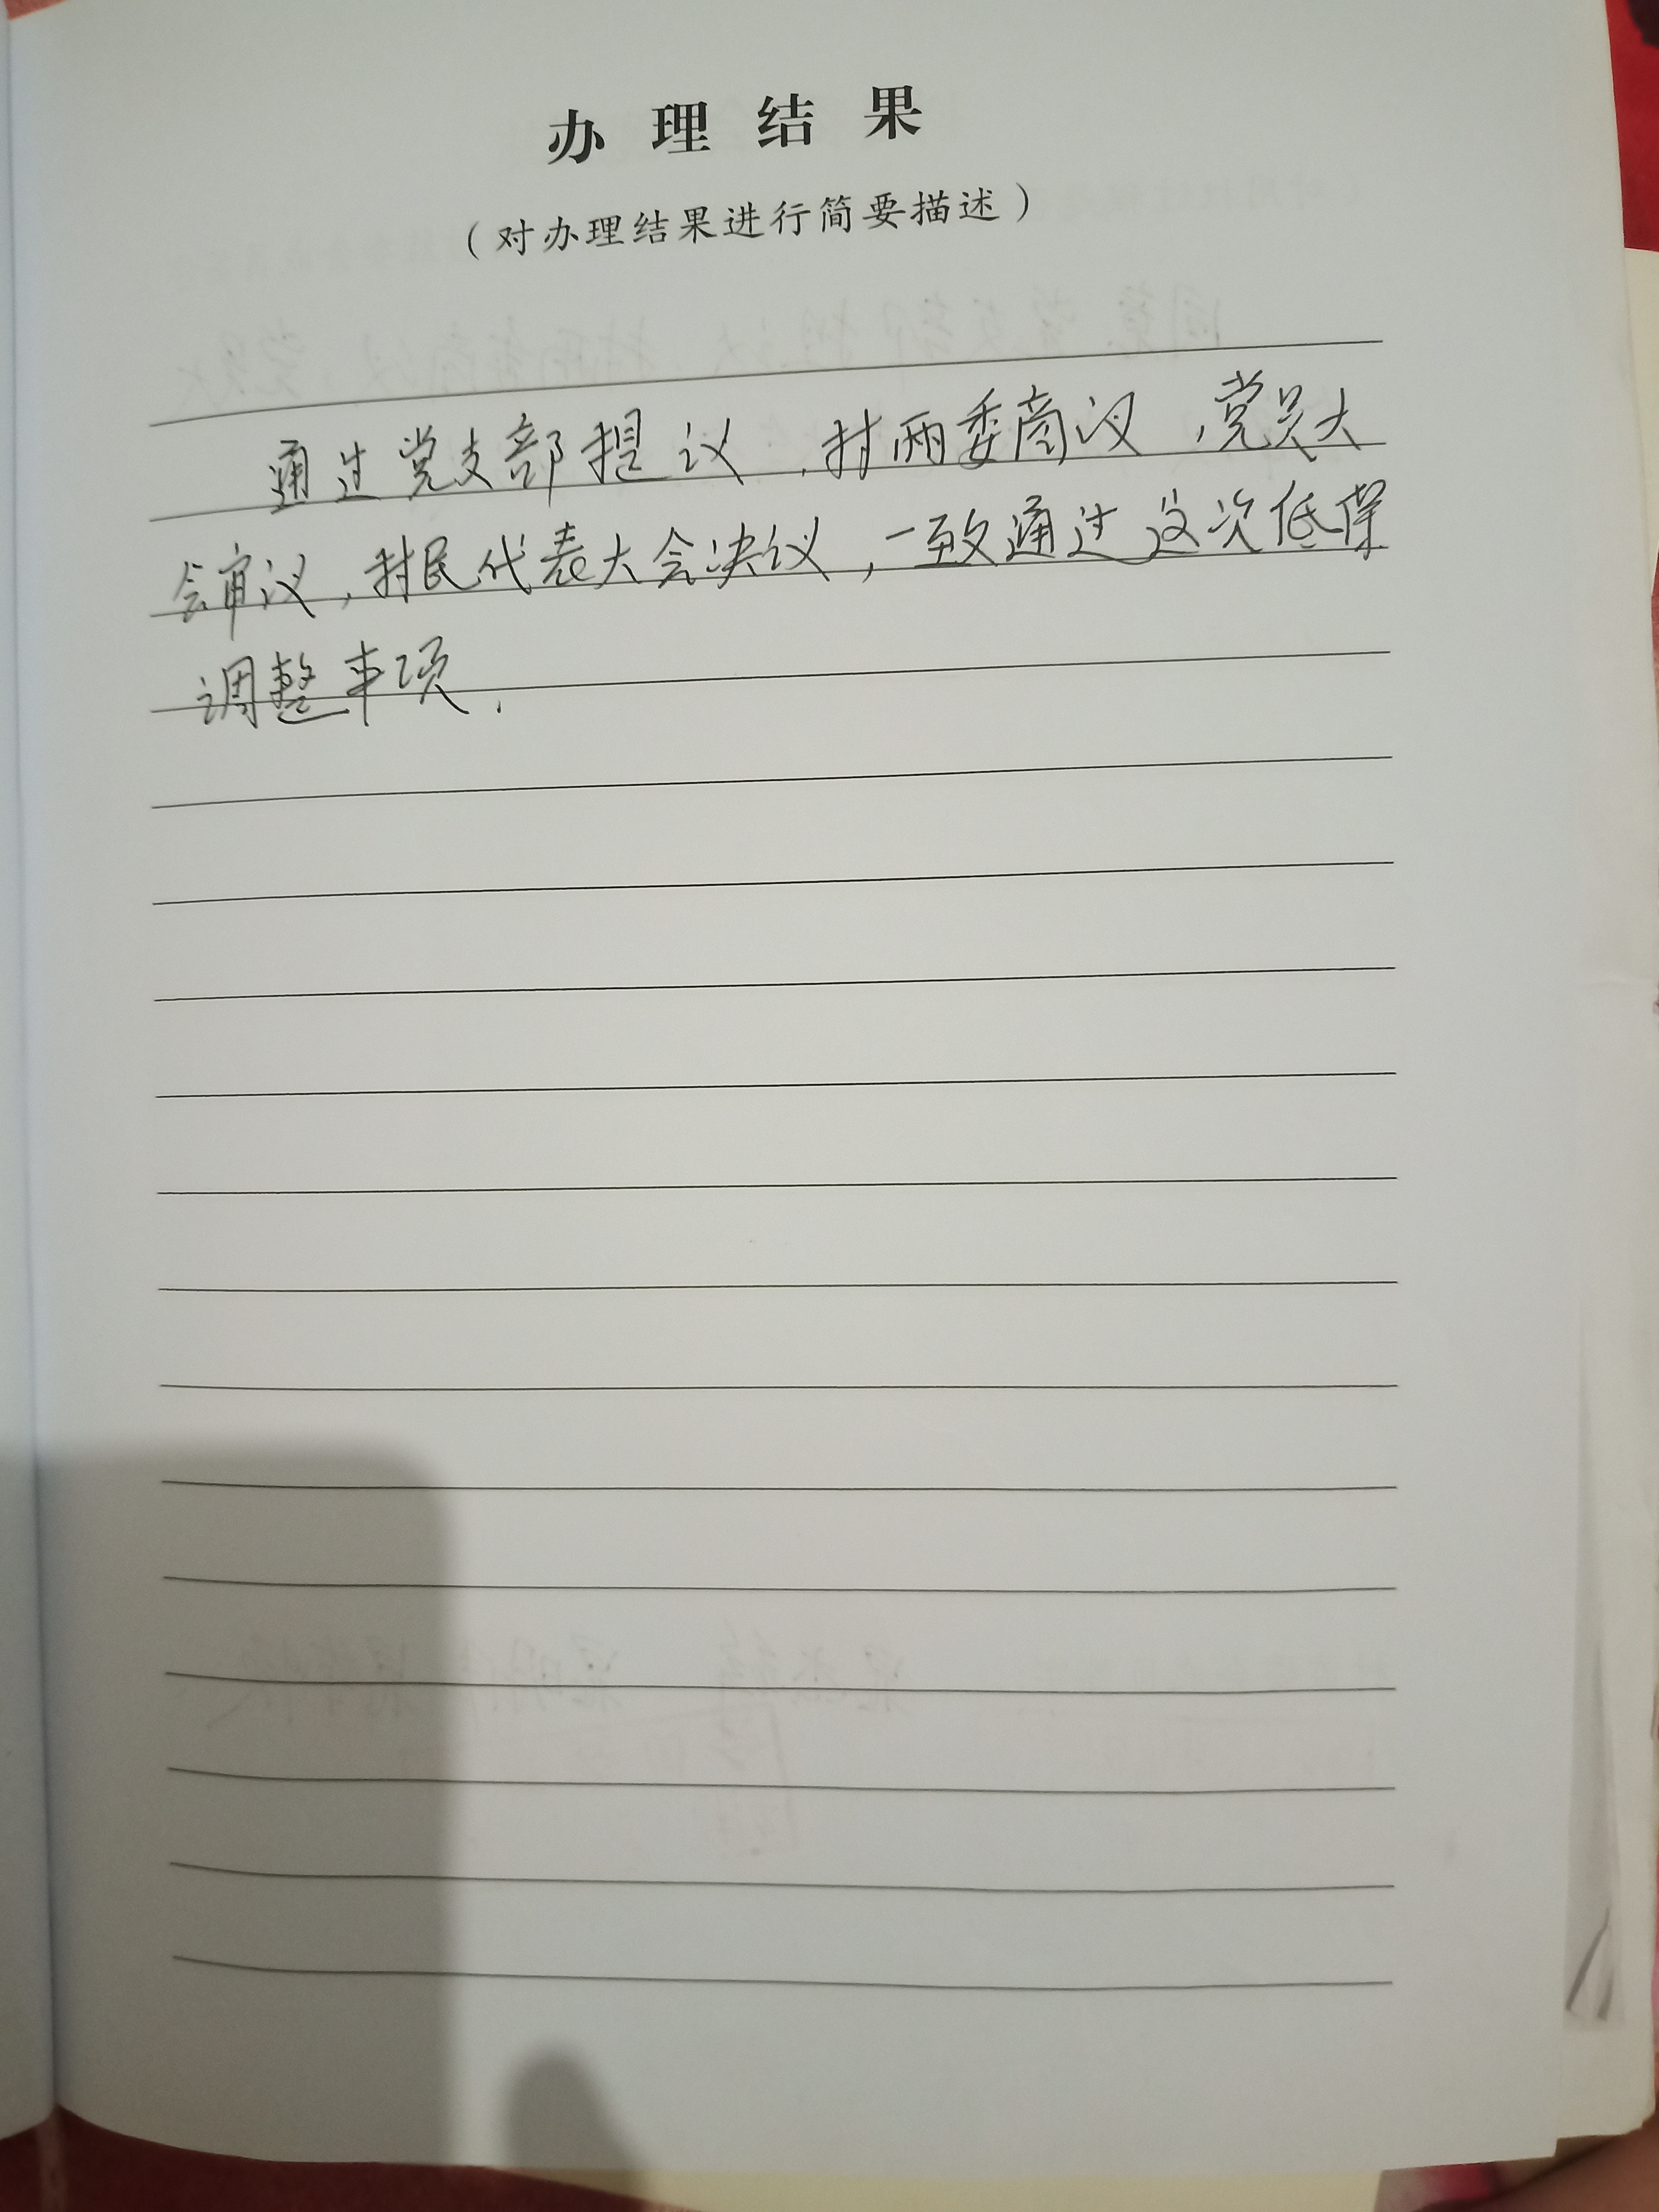 办理结果
（对办理结果进行简要描述）
通过党支部提议，村两委商议，党员大
会审议，村民代表大会决议，一致通过这次低保
调整事项.